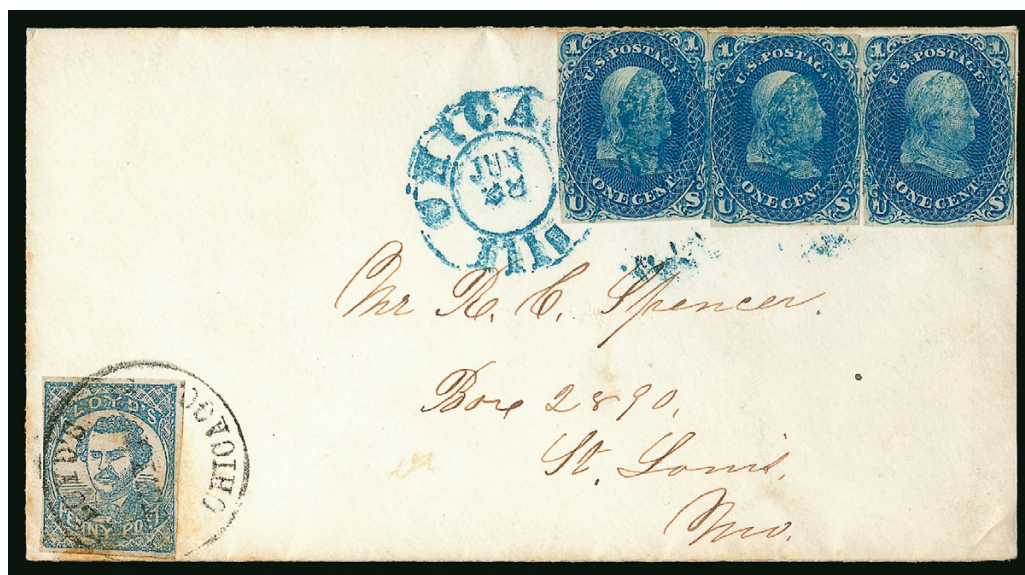 1 1
U.S. POSTAGE
ONE CENT
U S
1 1
U.S. POSTAGE
ONE CENT
U S
1 1
U.S. POSTAGE
ONE CENT
U S
CHICA
ILL
Mr R. C. Spencer.
Box 2890,
St. Louis,
Mo.
FLOYD'S
PENNY POST
CHICAGO